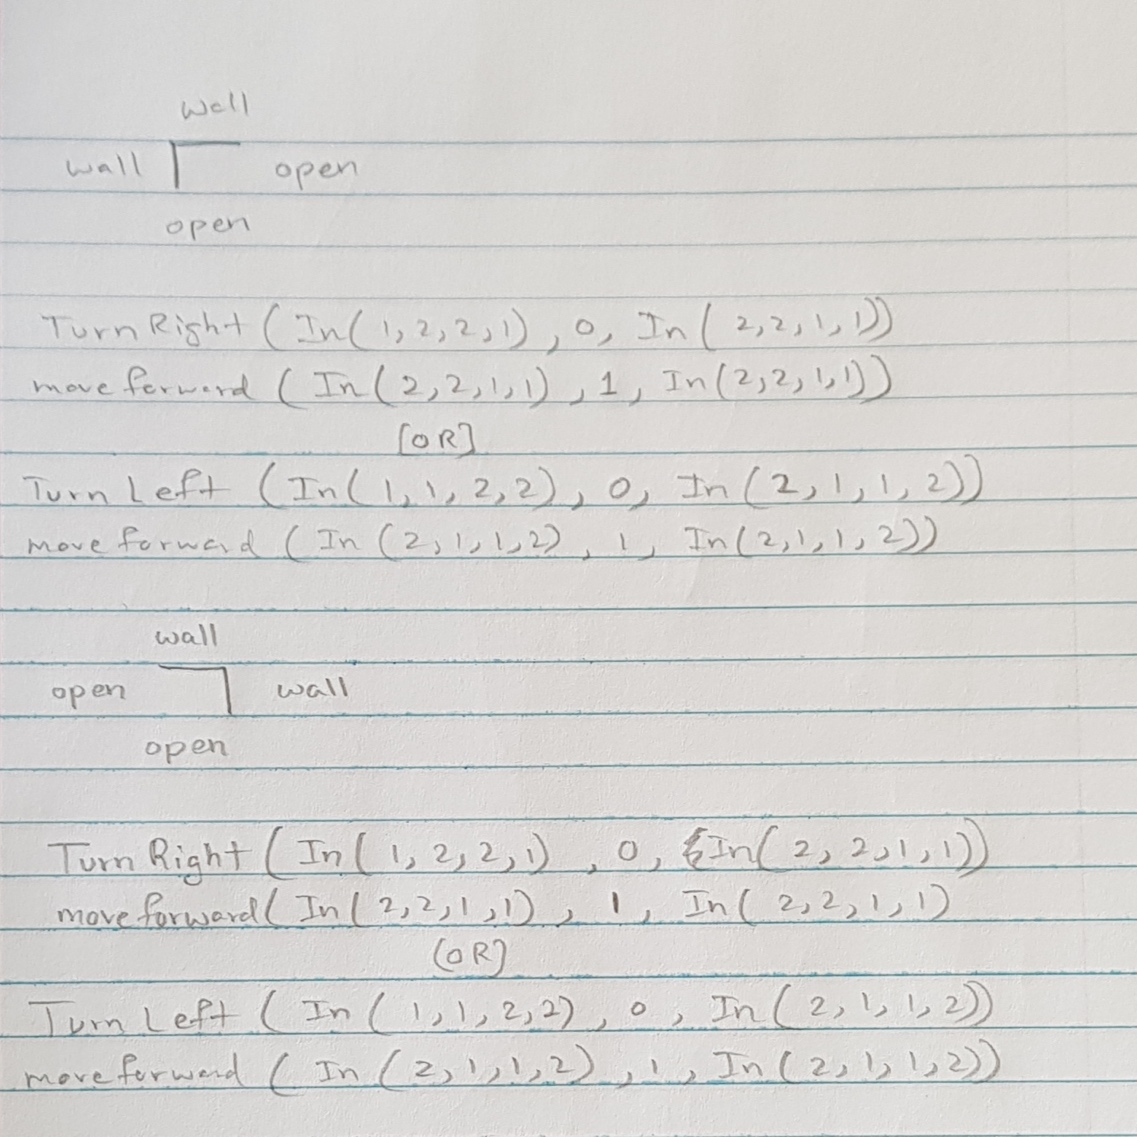 wall
wall open
open
Turn Right ( In( 1, 2, 2, 1) , 0, In( 2,2,1,1))
move forward ( In(2,2,1,1) , 1, In(2,2,1,1))
[OR]
Turn Left ( In( 1, 1, 2, 2), 0, In( 2, 1, 1, 2))
move forward ( In (2,1,1,2) , 1, In(2,1,1,2))
wall
open wall
open
Turn Right ( In( 1, 2, 2, 1) , 0, In( 2, 2,1,1))
move forward( In( 2,2,1,1) , 1, In( 2,2,1,1)
(OR)
Turn Left ( In ( 1,1,2,2) , 0 , In( 2, 1, 1, 2))
move forward ( In (2,1,1,2) , 1, In( 2, 1,1,2))